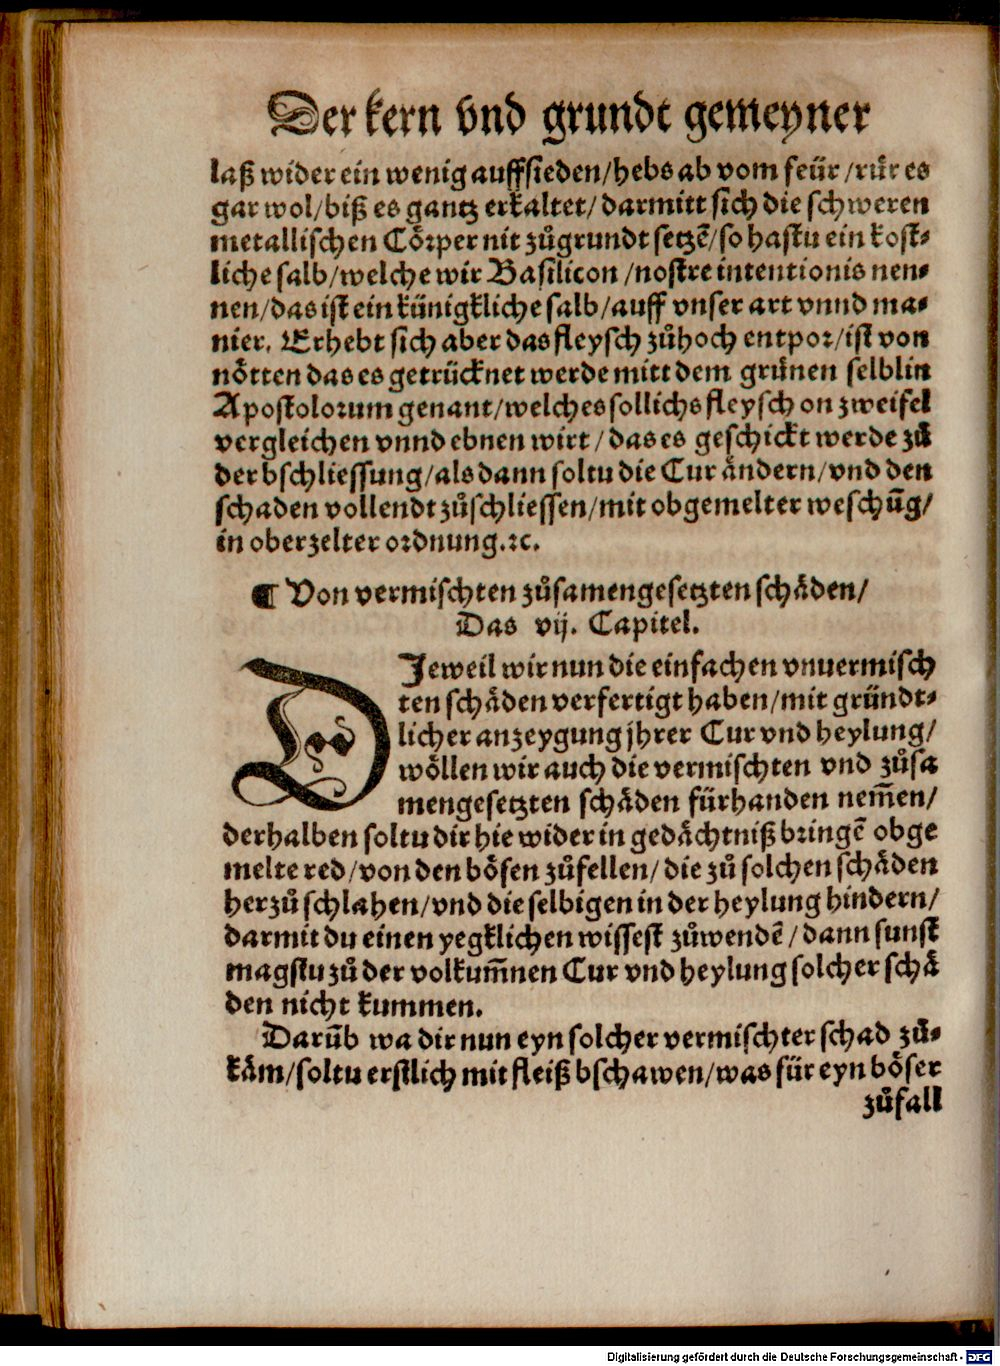 Der kern vnd grundt gemeyner
laß wider ein wenig auffsieden/hebs ab vom feür/rür es
gar wol/biß es gantz erkaltet/darmitt sich die schweren
metallischen Cörper nit zůgrundt setzē/so hastu ein kost⸗
liche salb/welche wir Basilicon/nostre intentionis nen⸗
nen/das ist ein künigkliche salb/auff vnser art vnnd ma⸗
nier. Erhebt sich aber das fleysch zůhoch entpor/ist von
nötten das es getrücknet werde mitt dem grünen selblin
Apostolorum genant/welches sollichs fleysch on zweifel
vergleichen vnnd ebnen wirt/das es geschickt werde zů
der bschliessung/als dann soltu die Cur ändern/vnd den
schaden vollendt zůschliessen/mit obgemelter weschūg/
in oberzelter ordnung.ꝛc.
¶ Von vermischten zůsamengesetzten schäden/
Das vij. Capitel.
DJeweil wir nun die einfachen vnuermisch
ten schäden verfertigt haben/mit gründt⸗
licher anzeygung jhrer Cur vnd heylung/
wöllen wir auch die vermischten vnd zůsa
mengesetzten schäden fürhanden nem̄en/
derhalben soltu dir hie wider in gedächtniß bringē obge
melte red/von den bösen zůfellen/die zů solchen schäden
herzů schlahen/vnd die selbigen in der heylung hindern/
darmit du einen yegklichen wissest zůwendē/dann sunst
magstu zů der volkum̄nen Cur vnd heylung solcher schä
den nicht kummen.
Darūb wa dir nun eyn solcher vermischter schad zů⸗
käm/soltu erstlich mit fleiß bschawen/was für eyn böser
zůfall
Digitalisierung gefördert durch die Deutsche Forschungsgemeinschaft - DFG